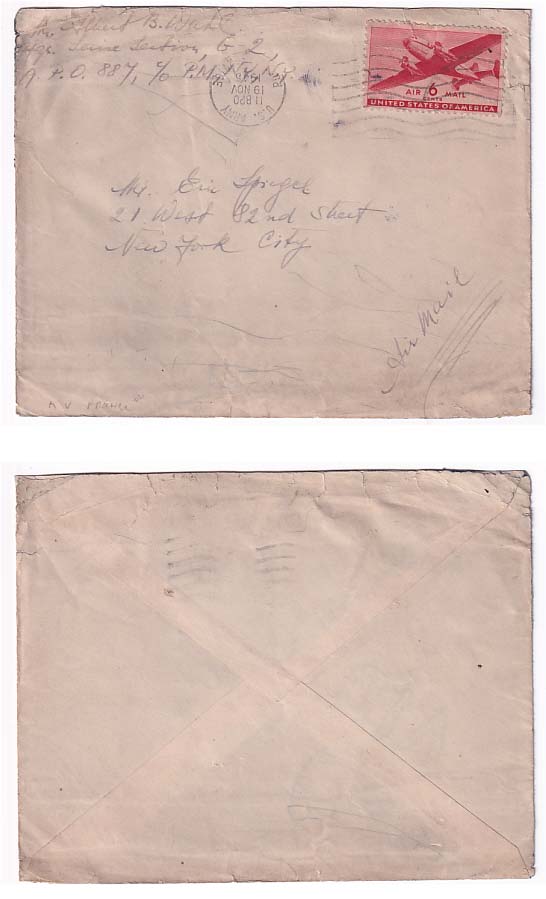 Albert B.
Hq. Seine Section, G 2,
A. P. O. 887, c/o P.M. N.Y. N.Y.
U.S. ARMY
11 820
19 NOV
AIR 6 MAIL
CENTS
UNITED STATES OF AMERICA
Mr. Eric Spiegel
21 West 82nd Street
New York City
Air Mail